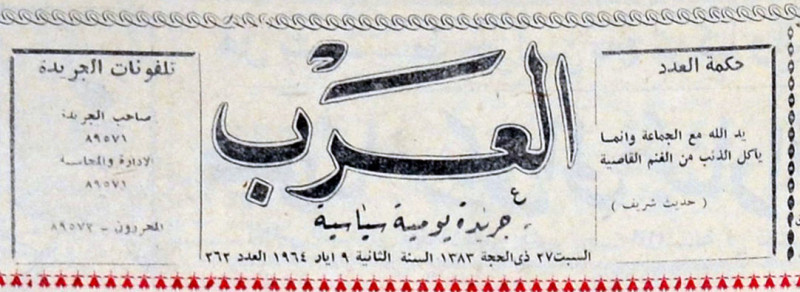 حكمة العدد
يد الله مع الجماعة وانما
يأكل الذئب من الغنم القاصية
( حديث شريف )
العرب
جريدة يومية سياسية
السبت ٢٧ ذي الحجة ١٣٨٣ السنة الثانية ٩ اياد ١٩٦٤ العدد ٣٦٢
تلفونات الجريدة
صاحب الجريدة
٨٩٥٧١
الادارة والمحاسبة
٨٩٥٧١
المحررون - ٨٩٥٧٢